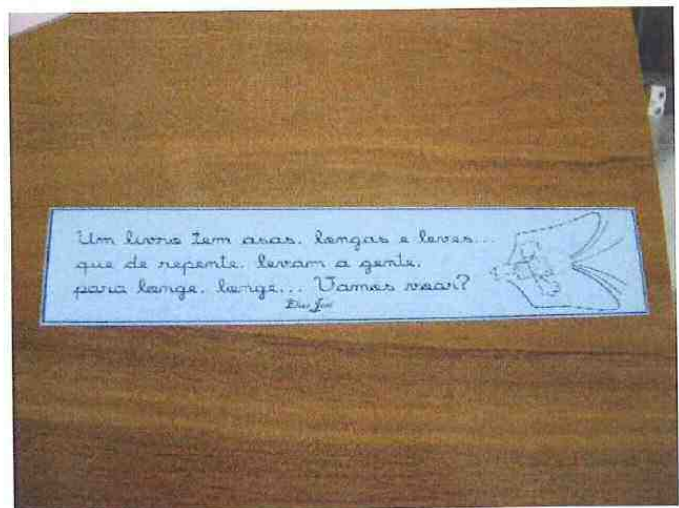 Um livro tem asas, longas e leves...
que de repente, levam a gente,
para longe, longe... Vamos voar?
Elias José